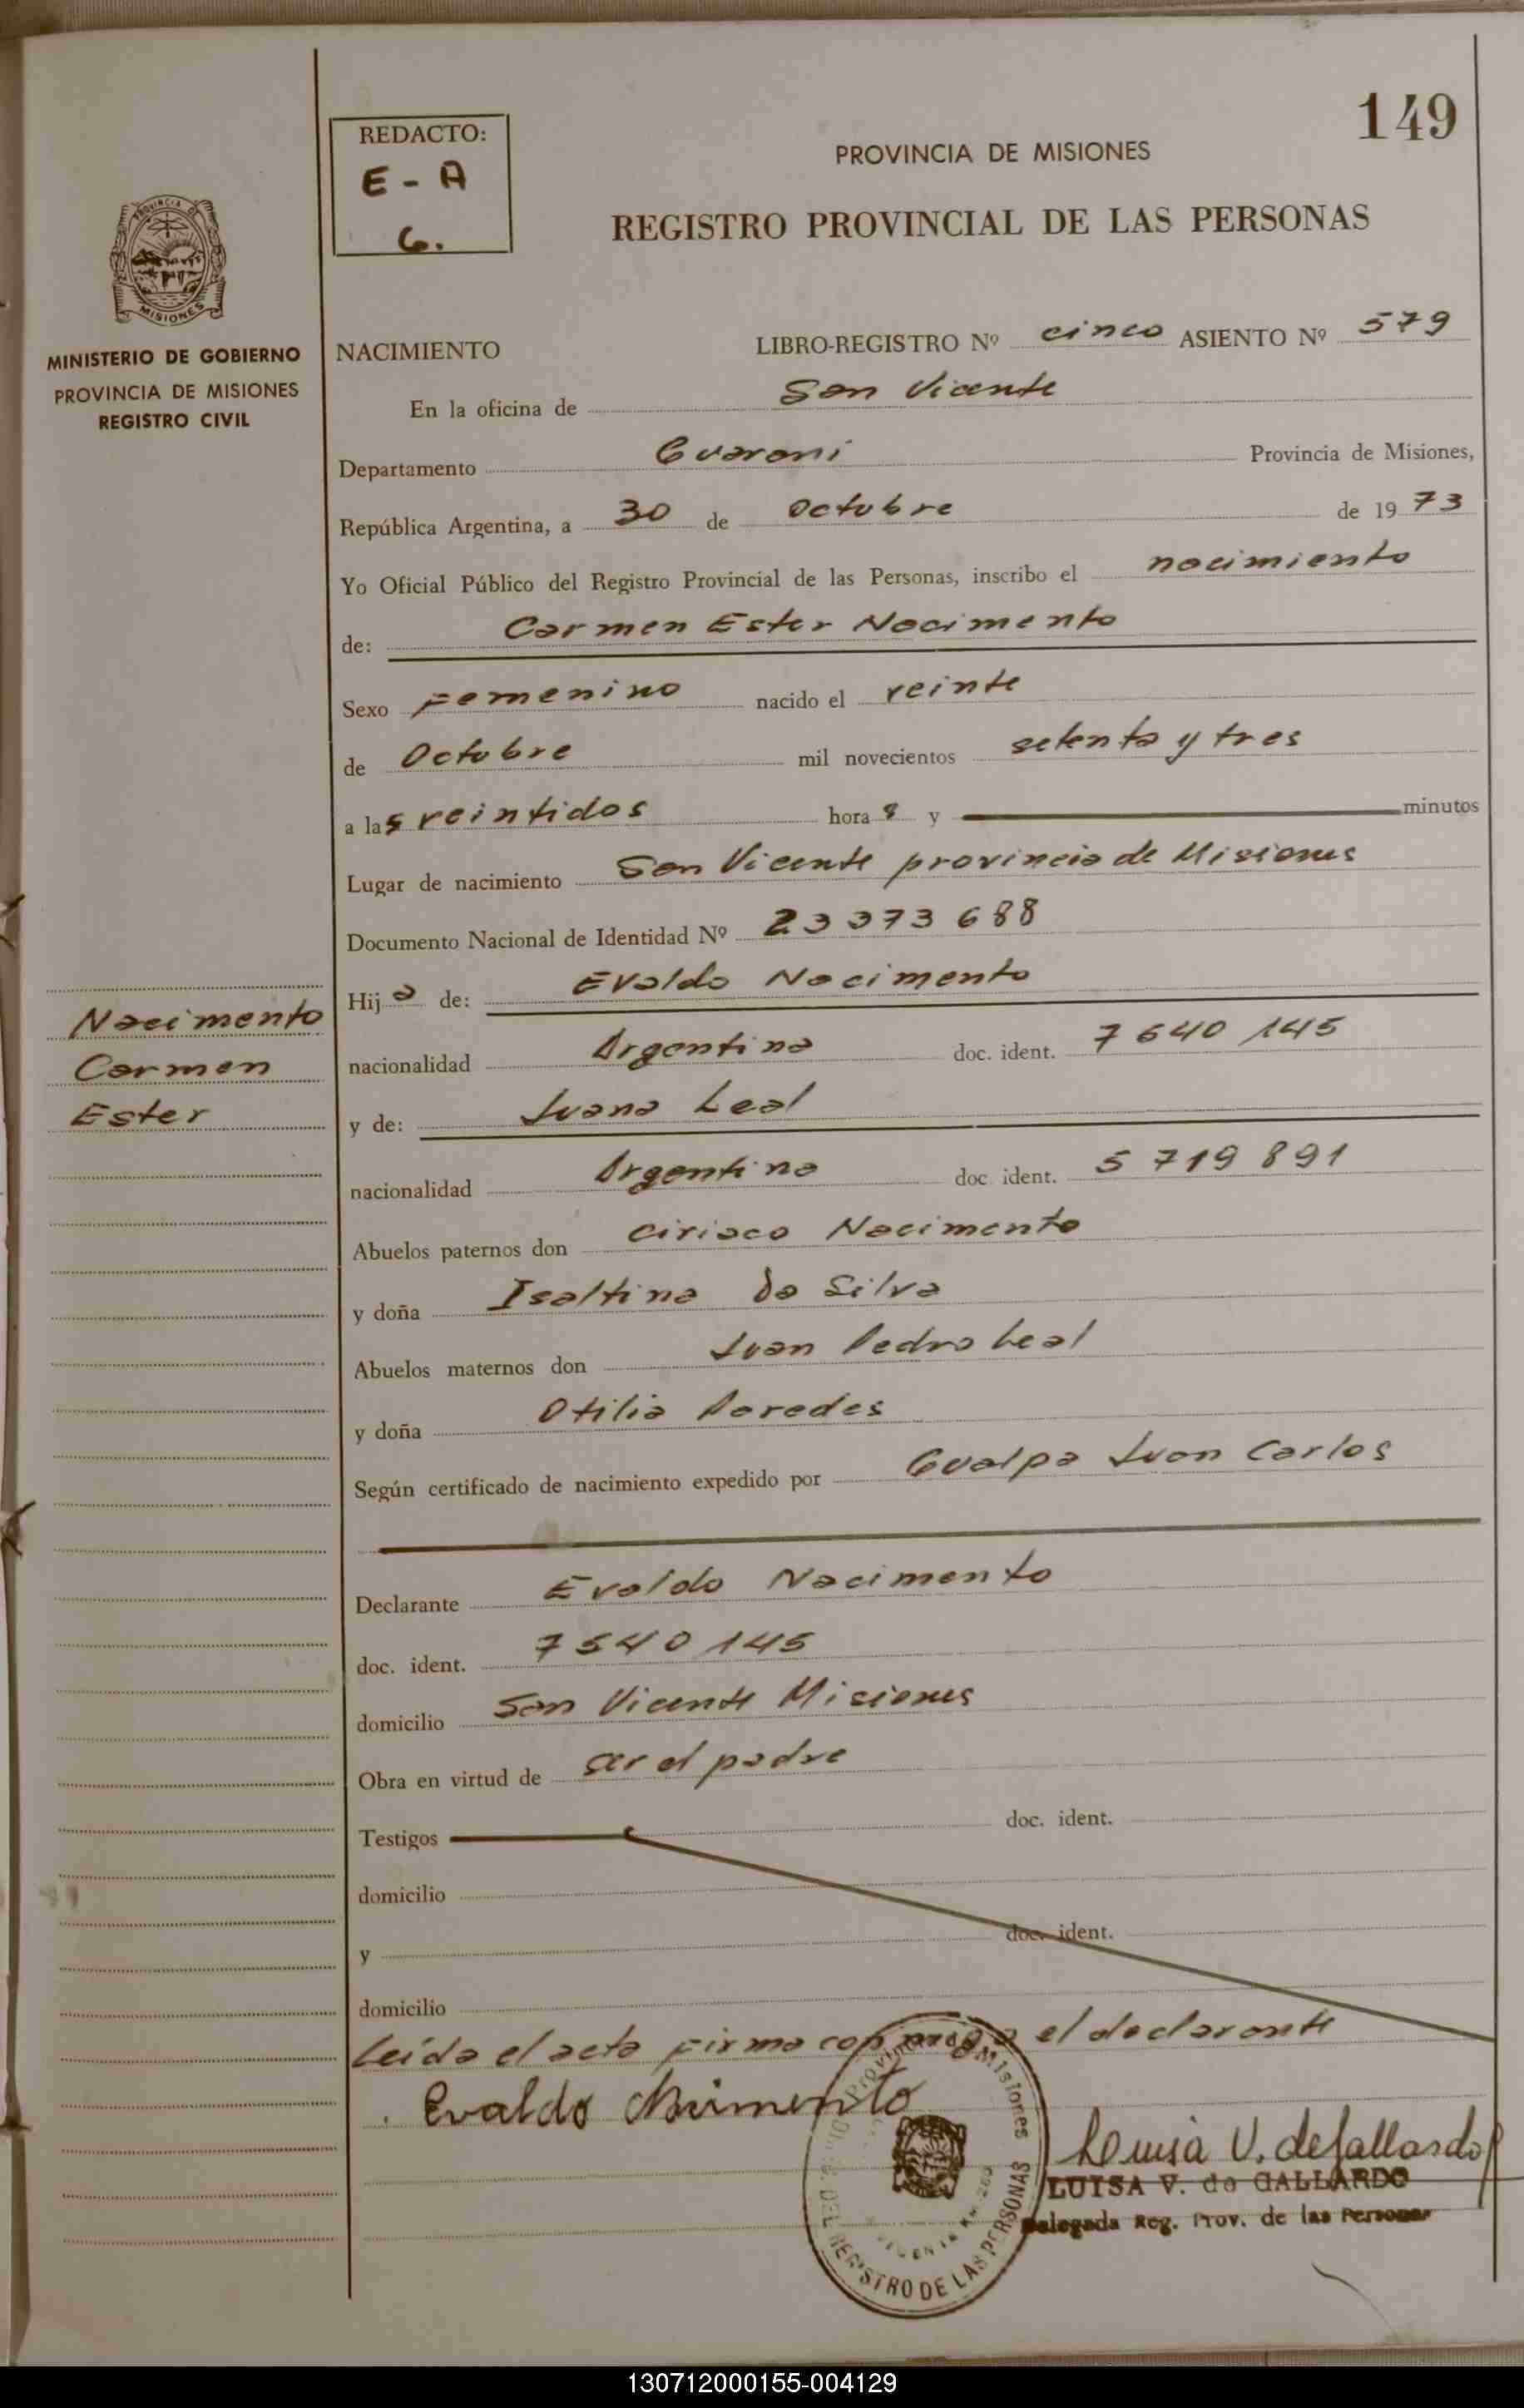 149
REDACTO:
E - A
G.
PROVINCIA DE MISIONES
REGISTRO PROVINCIAL DE LAS PERSONAS
PROVINCIA DE
MISIONES
MINISTERIO DE GOBIERNO
PROVINCIA DE MISIONES
REGISTRO CIVIL
NACIMIENTO LIBRO-REGISTRO Nº cinco ASIENTO Nº 579
En la oficina de San Vicente
Departamento Guarani Provincia de Misiones,
República Argentina, a 30 de Octubre de 19 73
Yo Oficial Público del Registro Provincial de las Personas, inscribo el nacimiento
de: Carmen Ester Nacimento
Sexo Femenino nacido el veinte
de Octubre mil novecientos setenta y tres
a las veintidos hora s y minutos
Lugar de nacimiento San Vicente provincia de Misiones
Documento Nacional de Identidad Nº 23 373 688
Hij a de: Evaldo Nacimento
nacionalidad Argentina doc. ident. 7 640 145
y de: Juana Leal
nacionalidad Argentina doc ident. 5 719 891
Abuelos paternos don Ciriaco Nacimento
y doña Isaltina da Silva
Abuelos maternos don Juan Pedro Leal
y doña Otilia Paredes
Según certificado de nacimiento expedido por Gualpa Juan Carlos
Nacimento
Carmen
Ester
Declarante Evaldo Nacimento
doc. ident. 7540145
domicilio San Vicente Misiones
Obra en virtud de ser el padre
Testigos doc. ident.
domicilio
y doc. ident.
domicilio
Leida el acta firma con migo el declarante
Evaldo Nacimento
Luisa V. de Gallardo
LUISA V. de GALLARDO
Delegada Reg. Prov. de las Personas
Misiones
DEL REGISTRO DE LAS PERSONAS
130712000155-004129